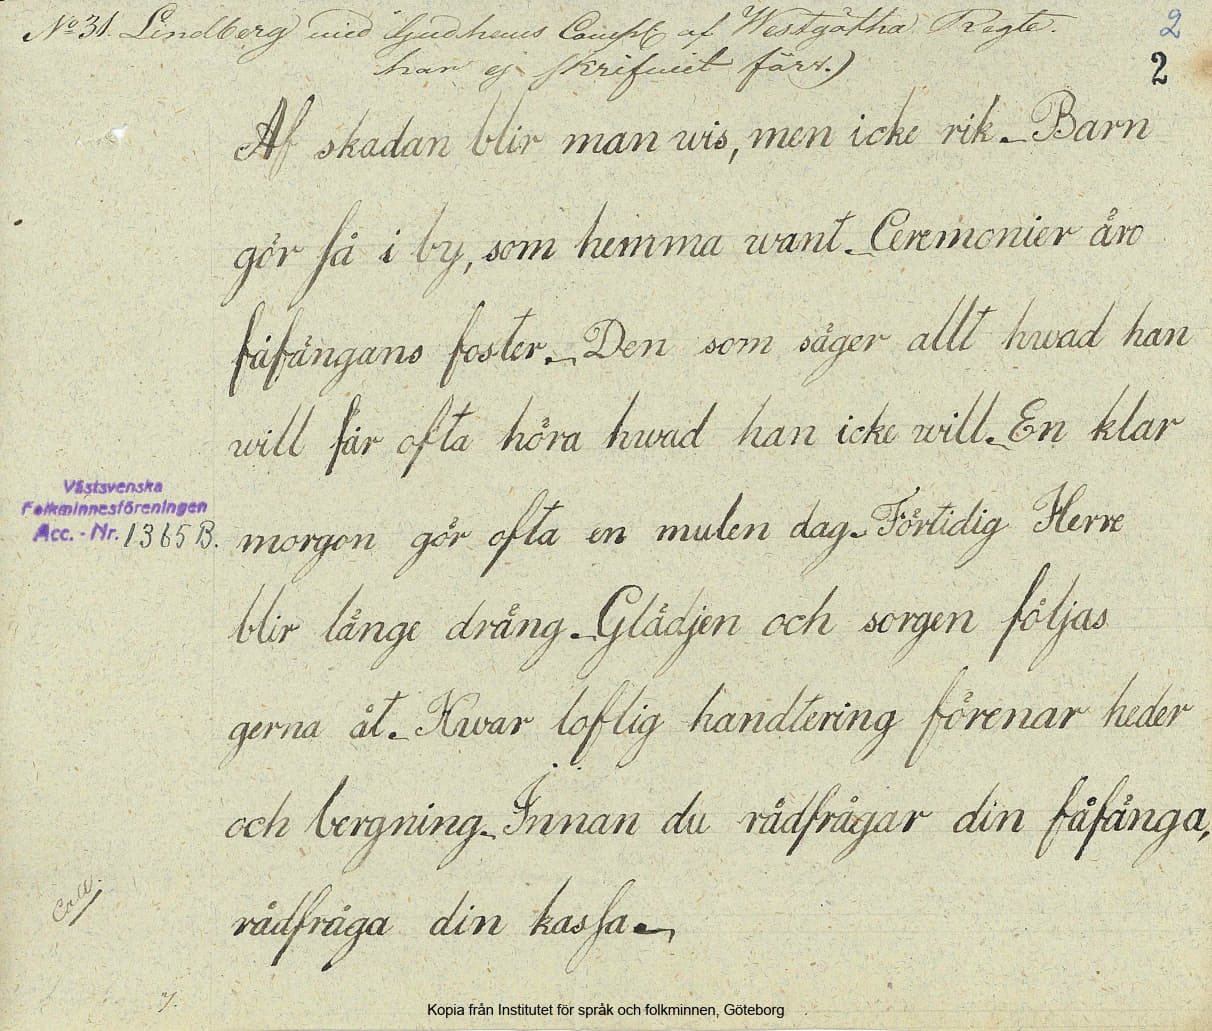 No 31. Lindberg vid Gudhems Comp af Westgötha Regte.
har ej skrifvit förr.)
2
2
Af skadan blir man wis, men icke rik. Barn
gör så i by, som hemma want. Ceremonier äro
fåfängans foster. Den som säger allt hwad han
will får ofta höra hwad han icke will. En klar
morgon gör ofta en mulen dag. Förtidig Herre
blir länge dräng. Glädjen och sorgen följas
gerna åt. Hwar loflig handtering förenar heder
och bergning. Innan du rådfrågar din fåfänga,
rådfråga din kassa.
Västsvenska
Folkminnesföreningen
Acc. - Nr. 1365 B.
Coll.
Kopia från Institutet för språk och folkminnen, Göteborg